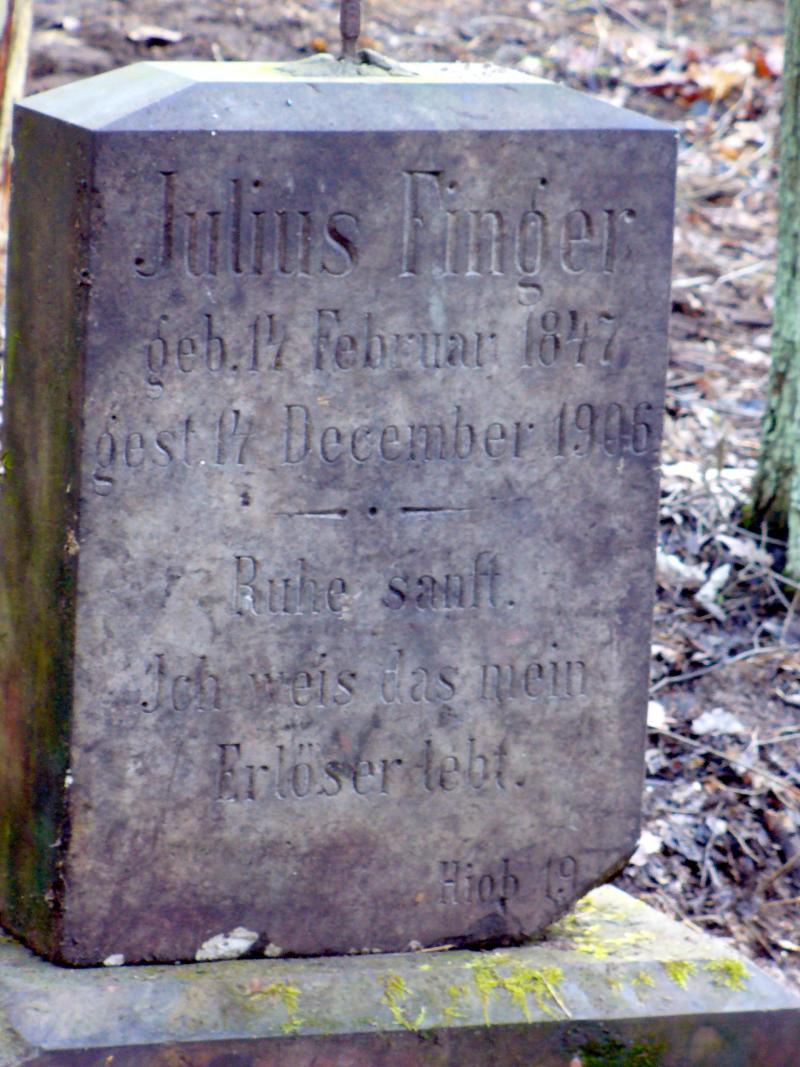 Julius Finger
geb. 14 Februar 1847
gest 14 December 1906
Ruhe sanft.
Ich weis das mein
Erlöser lebt.
Hiob 19